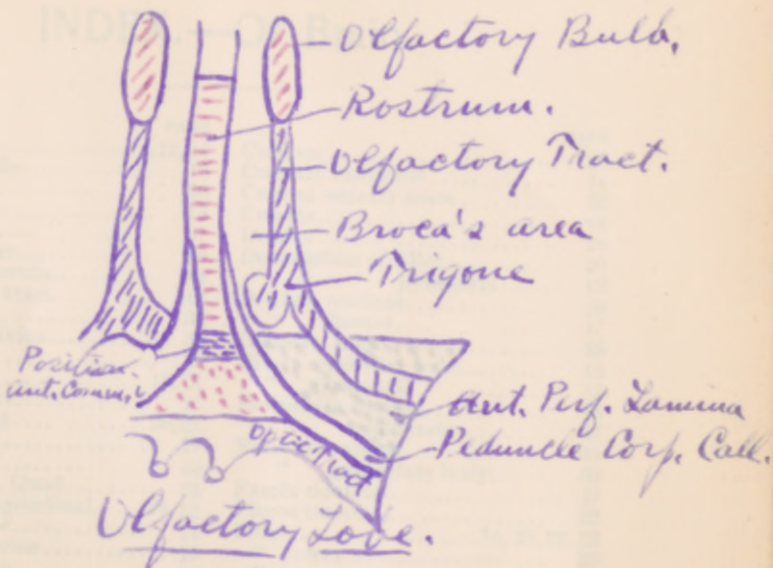 Olfactory Bulb.
Rostrum.
Olfactory Tract.
Broca's area
Trigone
Position
ant. Commis
Ant. Perf. Lamina
Peduncle Corp. Call.
Optic Tract
Olfactory Lobe.